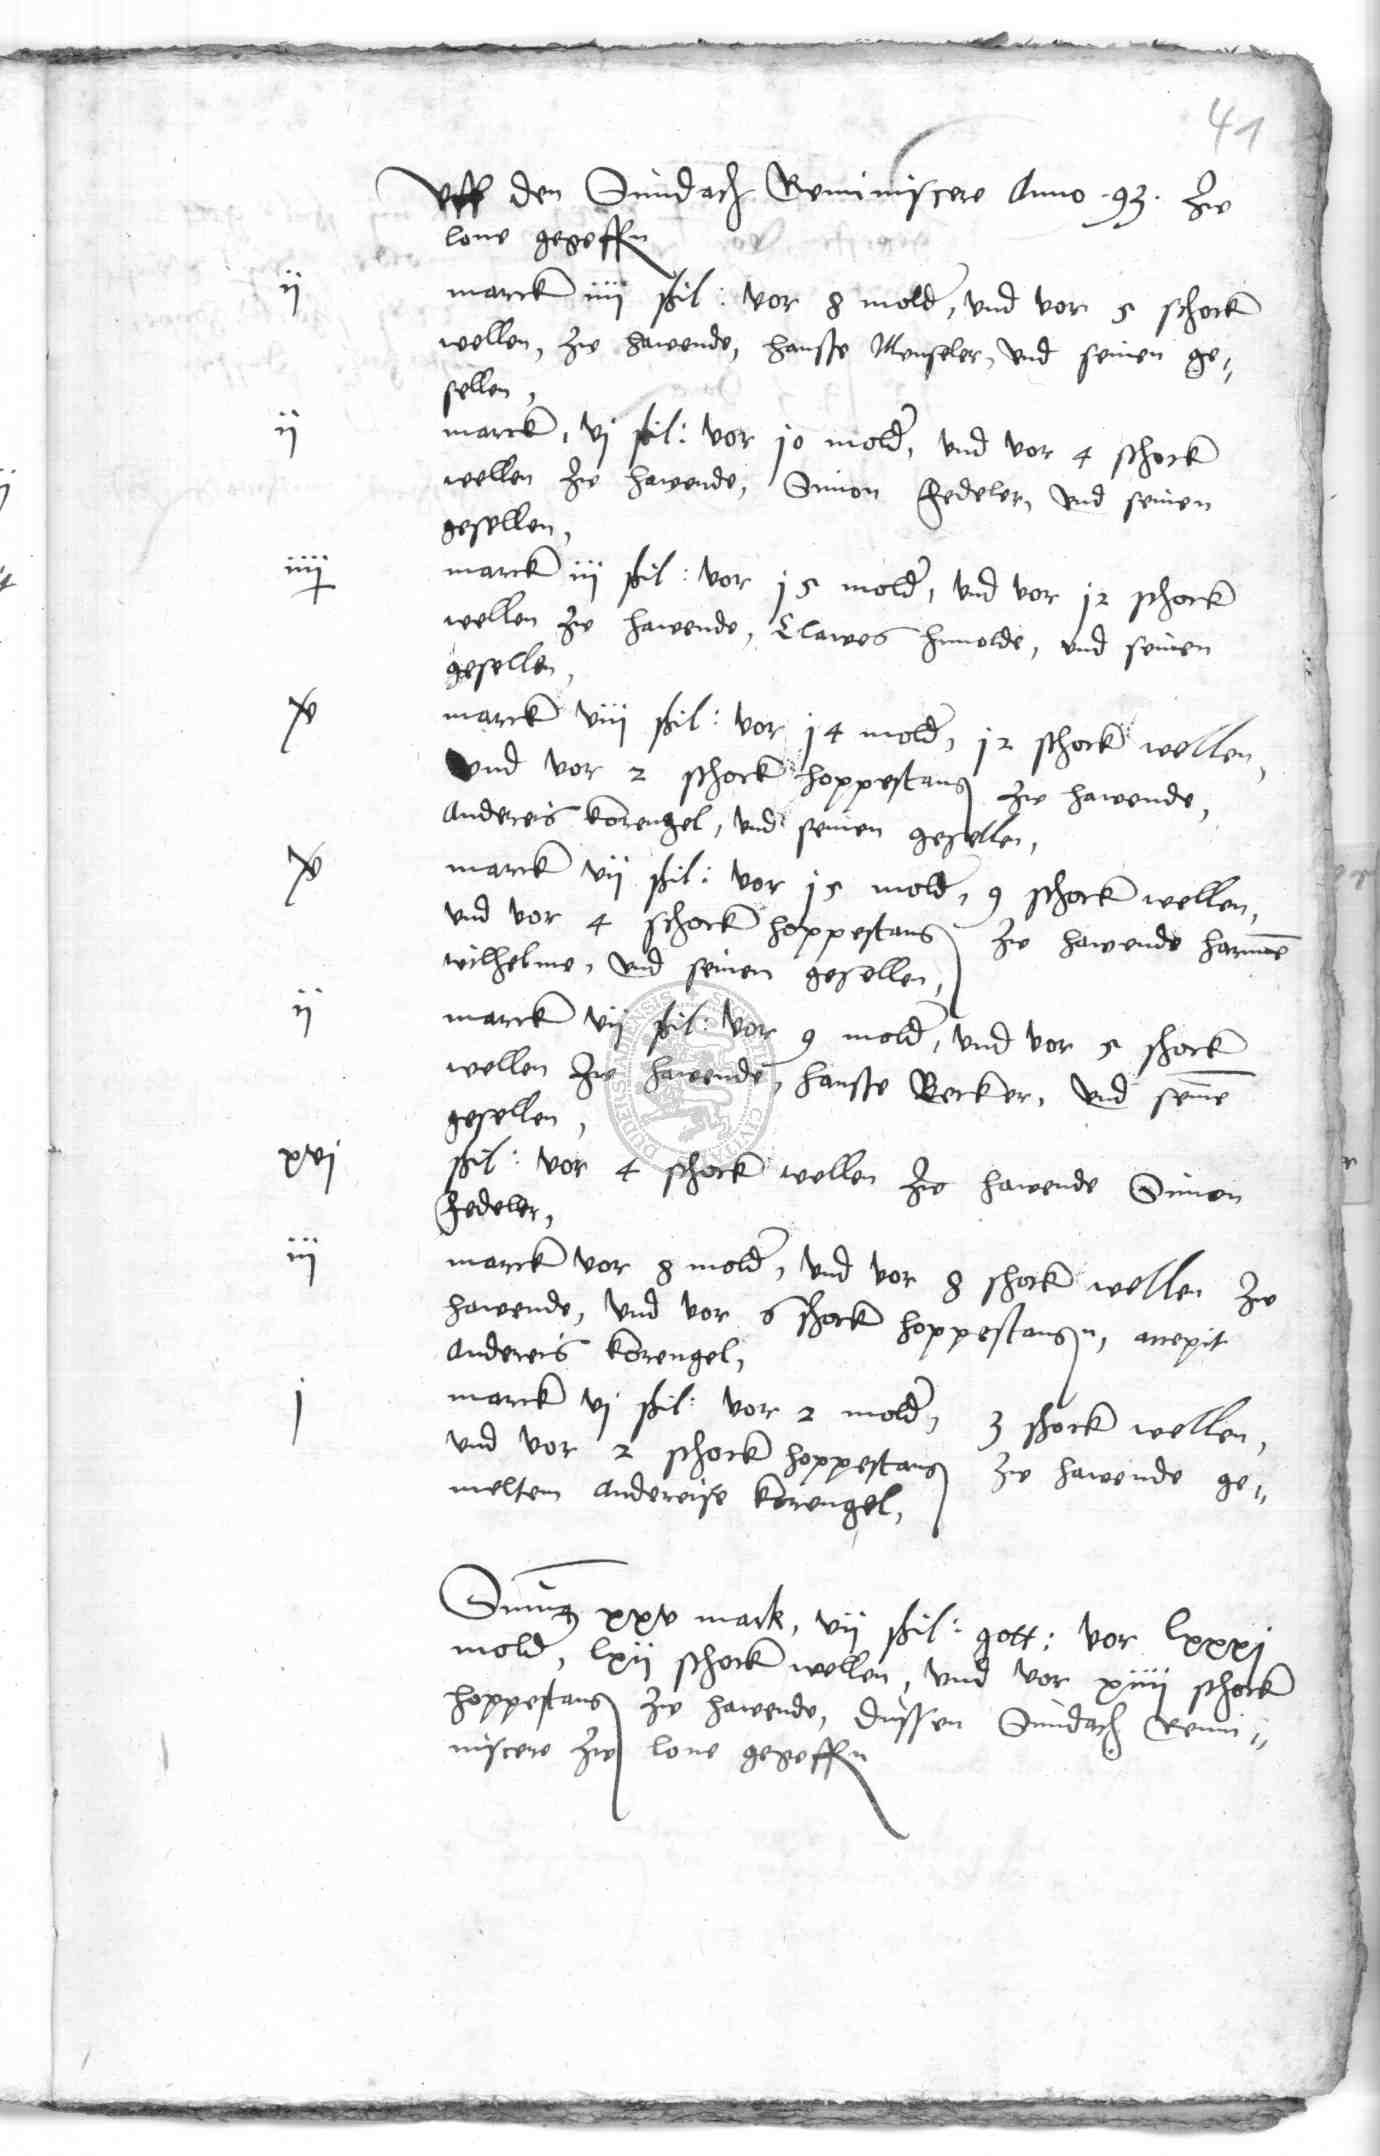 41
Uff den Sundach Reminiscere Anno 93. zw
lone gegeffn
ij marck iiij ßil: vor 8 mold, vnd vor 5 schock
wellen, zw hawende, hansse Menseler, vnd seinen ge„
sellen,
ij marck, vj ßil: vor j0 mold, vnd vor 4 schock
wellen zw hawende, Simon Fedeler, vnd seinen
gesellen,
iiij marck iij ßil: vor j5 mold, vnd vor j2 schock
wellen zw hawende, Clawes hunolde, vnd seinen
gesellen,
marck viij ßil: vor j4 mold, j2 schock wellen,
vnd vor 2 schock hoppestang zw hawende,
Andereis korengel, vnd seinen gesellen,
marck vij ßil: vor j5 mold, 9 schock wellen,
vnd vor 4 schock hoppestang zw hawende harmē
wilhelme, vnd seinen gesellen,
ij marck vij ßil: vor 9 mold, vnd vor 5 schock
wellen zw hawende, hansse Becker, vnd seinē
gesellen,
xvj ßil: vor 4 schock wellen zw hawende Simon
Fedeler,
iij marck vor 8 mold, vnd vor 8 schock wellen zw
hawende, vnd vor 6 schock hoppestangn, accepit
Andereis korengel,
j marck vj ßil: vor 2 mold, 3 schock wellen,
vnd vor 2 schock hoppestang zw hawende ge„
meltem Andereise korengel,
Summa xxv mark, vij ßil: gott: vor lxxxj
mold, lxij schock wellen, vnd vor xiiij schock
hoppestang zw hawende, dussen Sundach Remi„
niscere zw lone gegeffn